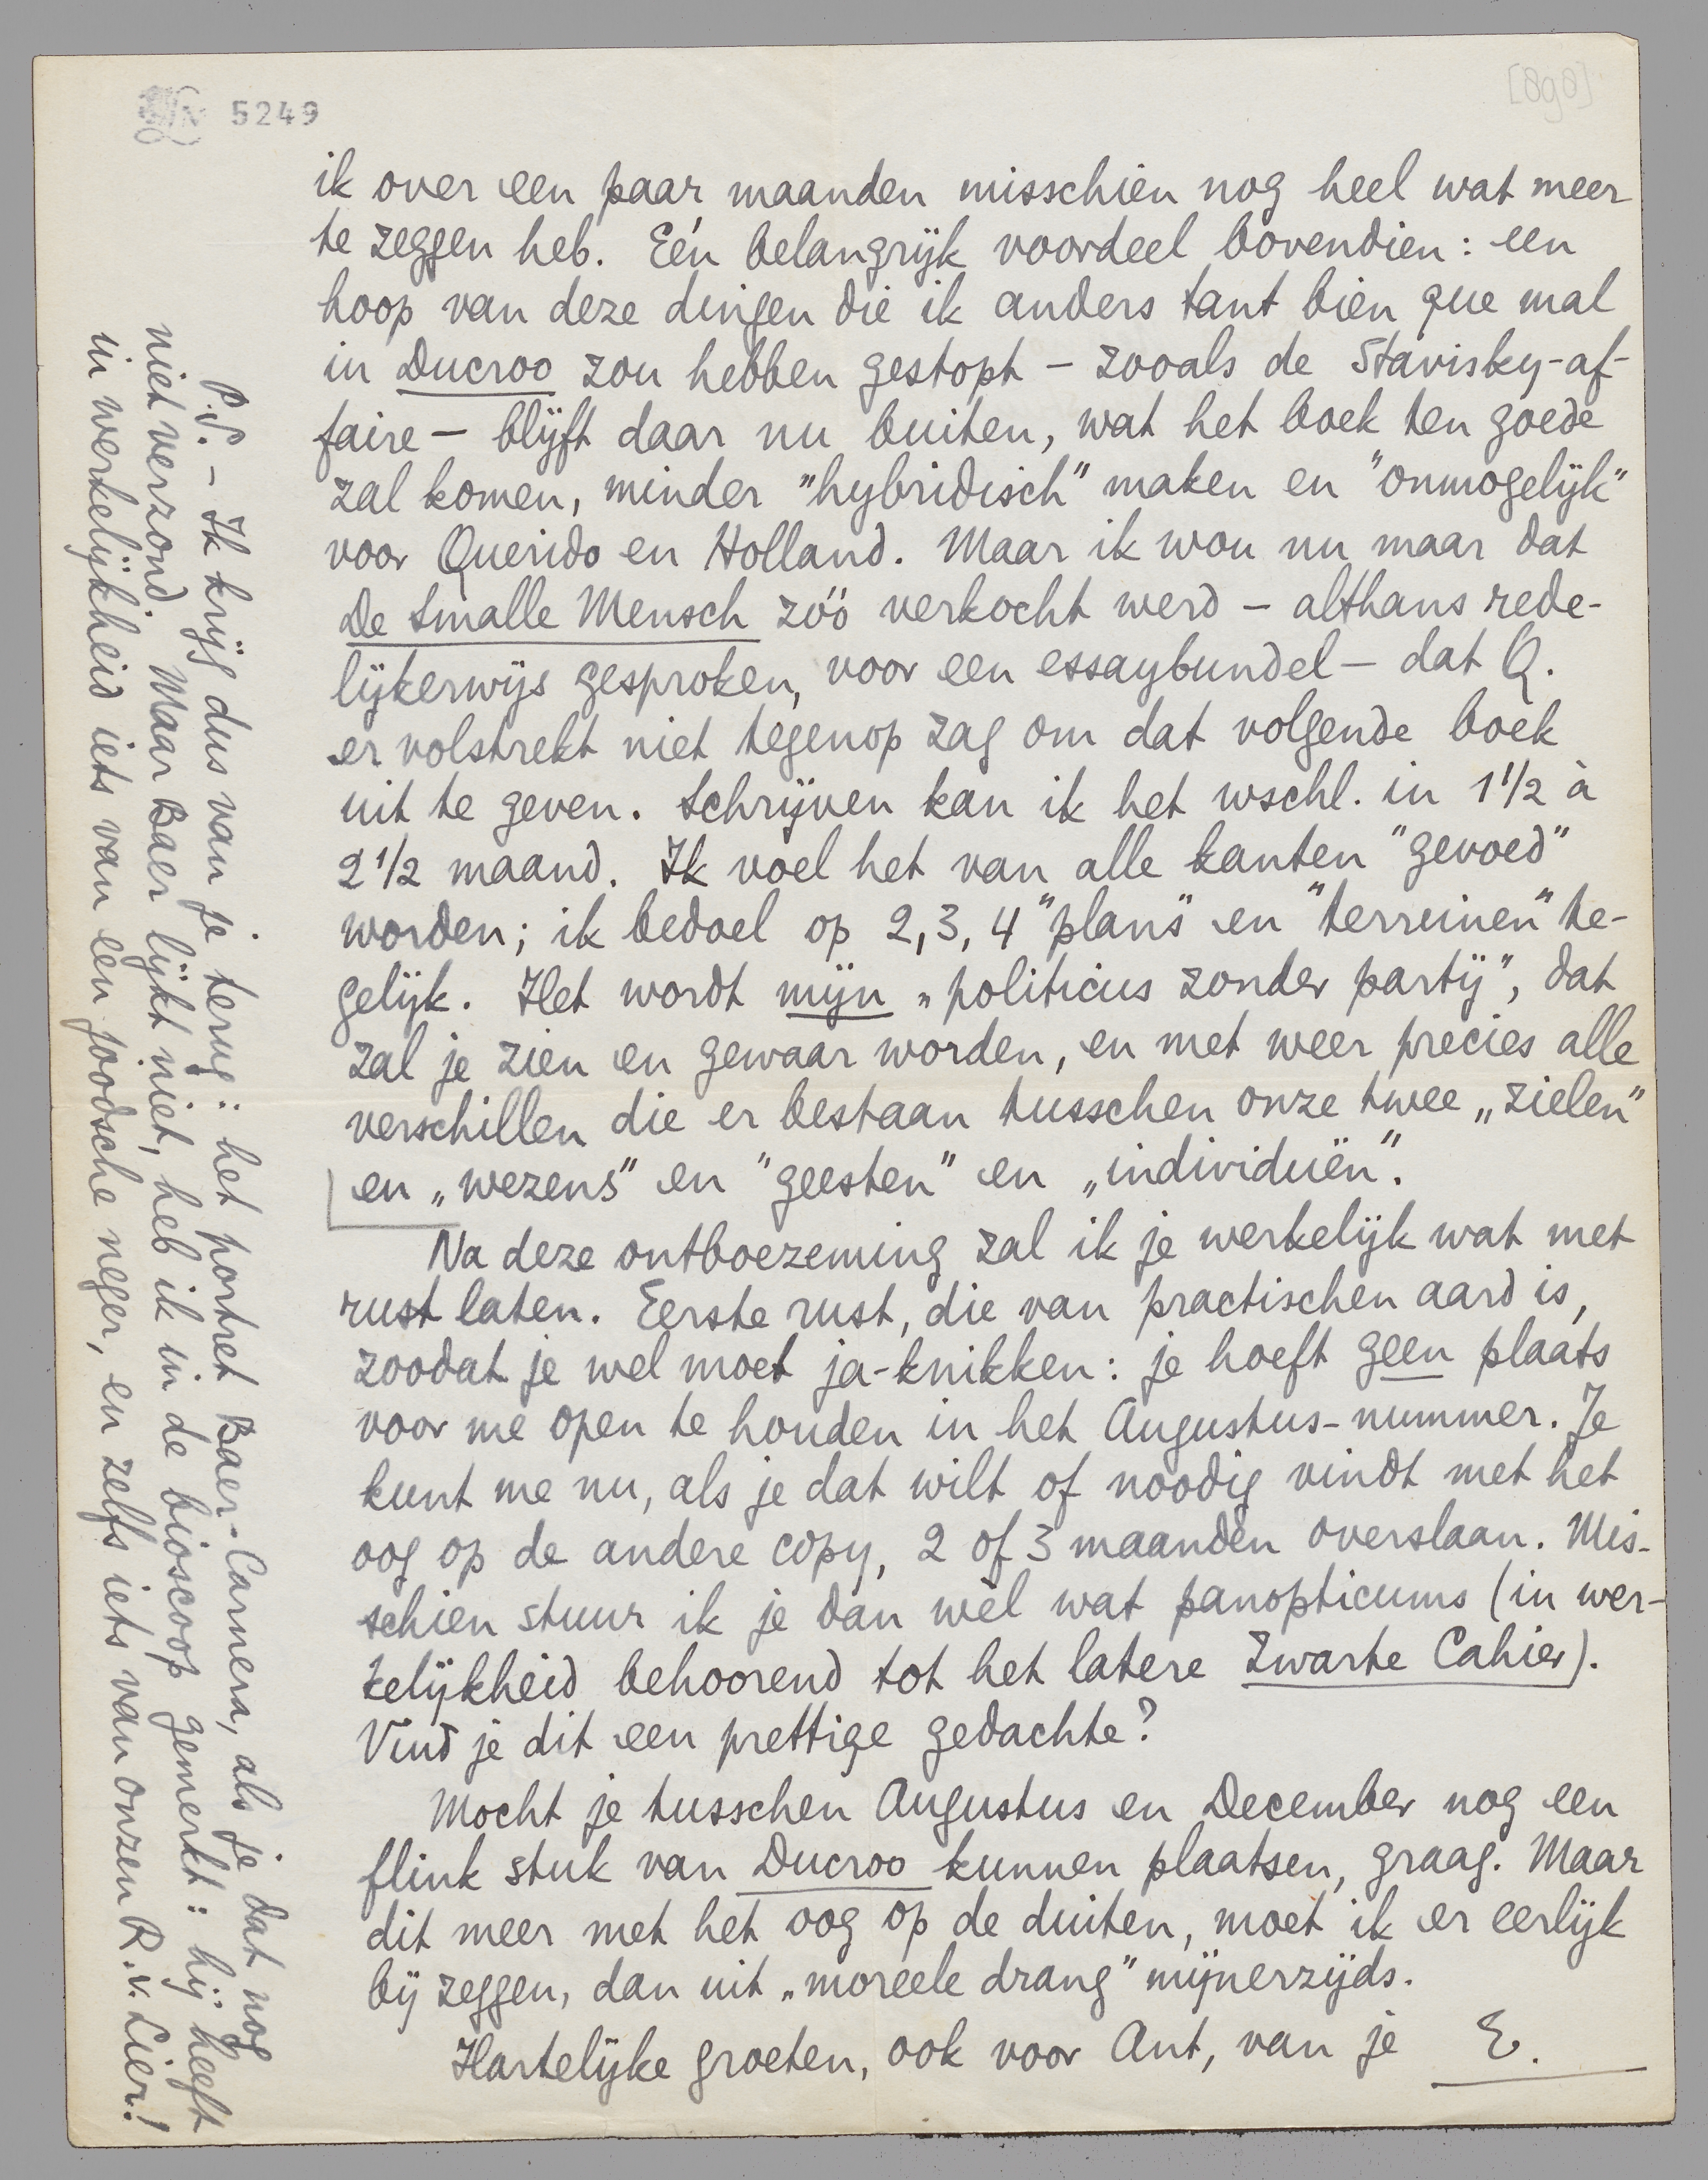 5249
[898]
ik over een paar maanden misschien nog heel wat meer
te zeggen heb. Eén belangrijk voordeel bovendien: een
hoop van deze dingen die ik anders tant bien que mal
in Ducroo zou hebben gestopt – zooals de Stavisky-af-
faire – blijft daar nu buiten, wat het boek ten goede
zal komen, minder "hybridisch" maken en "onmogelijk"
voor Querido en Holland. Maar ik wou nu maar dat
De Smalle Mensch zóó verkocht werd – althans rede-
lijkerwijs gesproken, voor een essaybundel – dat Q.
er volstrekt niet tegenop zag om dat volgende boek
uit te geven. Schrijven kan ik het wschl. in 1 1/2 à
2 1/2 maand. Ik voel het van alle kanten "gevoed"
worden; ik bedoel op 2, 3, 4 "plans" en "terreinen" te-
gelijk. Het wordt mijn „politicus zonder partij", dat
zal je zien en gewaar worden, en met weer precies alle
verschillen die er bestaan tusschen onze twee „zielen"
en „wezens" en "geesten" en „individuën".
Na deze ontboezeming zal ik je werkelijk wat met
rust laten. Eerste rust, die van practischen aard is,
zoodat je wel moet ja-knikken: je hoeft geen plaats
voor me open te houden in het Augustus-nummer. Je
kunt me nu, als je dat wilt of noodig vindt met het
oog op de andere copy, 2 of 3 maanden overslaan. Mis-
schien stuur ik je dan wèl wat panopticums (in wer-
kelijkheid behoorend tot het latere Zwarte Cahier).
Vind je dit een prettige gedachte?
Mocht je tusschen Augustus en December nog een
flink stuk van Ducroo kunnen plaatsen, graag. Maar
dit meer met het oog op de duiten, moet ik er eerlijk
bij zeggen, dan uit „moreele drang" mijnerzijds.
Hartelijke groeten, ook voor Ant, van je E.
P.S. – Ik krijg dus van je terug: het portret Baer-Carnera, als je dat nog
niet verzond. Maar Baer lijkt niet, heb ik in de bioscoop gemerkt: hij heeft
in werkelijkheid iets van een joodsche neger, en zelfs iets van onzen R. v. Lier!